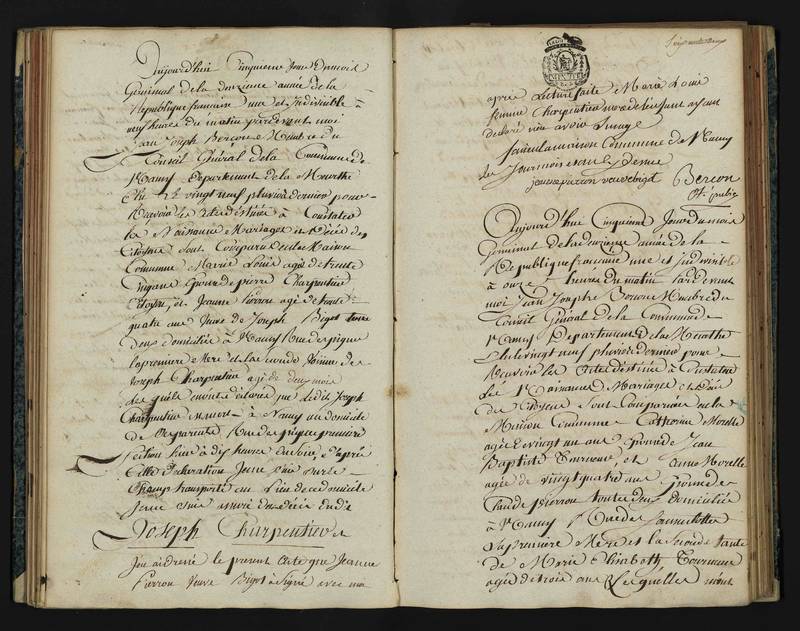 Aujourd'hui Cinquieme Jour du mois
Germinal de la deuxieme année de la
République francaise une et Indivisible à
neuf heures du matin pardevant moi
Jean Joseph Bercon Membre du
Conseil Général de la Commune de
Nancy Département de la Meurthe
Elu Le vingt neuf pluviose dernier pour
Recevoir les actes destinés à Constater
la Naissance Mariages et Décès des
Citoyens Sont Comparu en la Maison
Commune Marie Louis agée de trente
cinq ans Epouse de pierre Charpentier
Citoyen, et Jeanne pierron agé de trente
quatre ans veuve de Joseph Bigot toutes
deux domicilié à Nancy Rue de pique
la premiere Mere et la seconde Voisine de
Joseph Charpentier agé de deux mois
Lesquels m'ont déclarés que Ledit Joseph
Charpentier est mort à Nancy au domicile
de ses parents Rue de pique premiere
section hier à dix heures du soir, d'après
cette déclaration Je me suis sur le
Champ transporté au Lieu de ce domicile
Je me suis assuré du Décès dudit
Joseph Charpentier et
J'en ai dressé le present acte que Jeanne
Pierron Veuve Bigot à Signé avec moi
après Lecture faite Marie Louis
femme Charpentier mere de l'enfant ayant
declaré n'en avoir L'usage
fait en la maison Commune de Nancy
les Jour mois et an que Dessus
jeanne pierron veuve bigot Bercon
Of. public
Aujourd'hui Cinquieme Jour du mois
Germinal de la deuxieme année de la
République francaise une et Indivisible
à onze heures du matin pardevant
moi Jean Joseph Bercon Membre du
Conseil Général de la Commune de
Nancy Département de la Meurthe
Elu le vingt neuf pluviose dernier pour
Recevoir les Actes destinés à Constater
Les Naissance Mariages et Décès
des Citoyens Sont Comparues en la
Maison Commune Catherine Morelle
agée de vingt un ans Epouse de Jean
Baptiste Tourneur, et Anne Morelle
agée de vingt quatre ans Epouse de
Claude pierron toutes deux domiciliée
à Nancy Rue des Sansculottes
La premiere Mère et la seconde tante
de Marie Elisabeth Tourneur
agée de trois ans Lesquelles m'ont